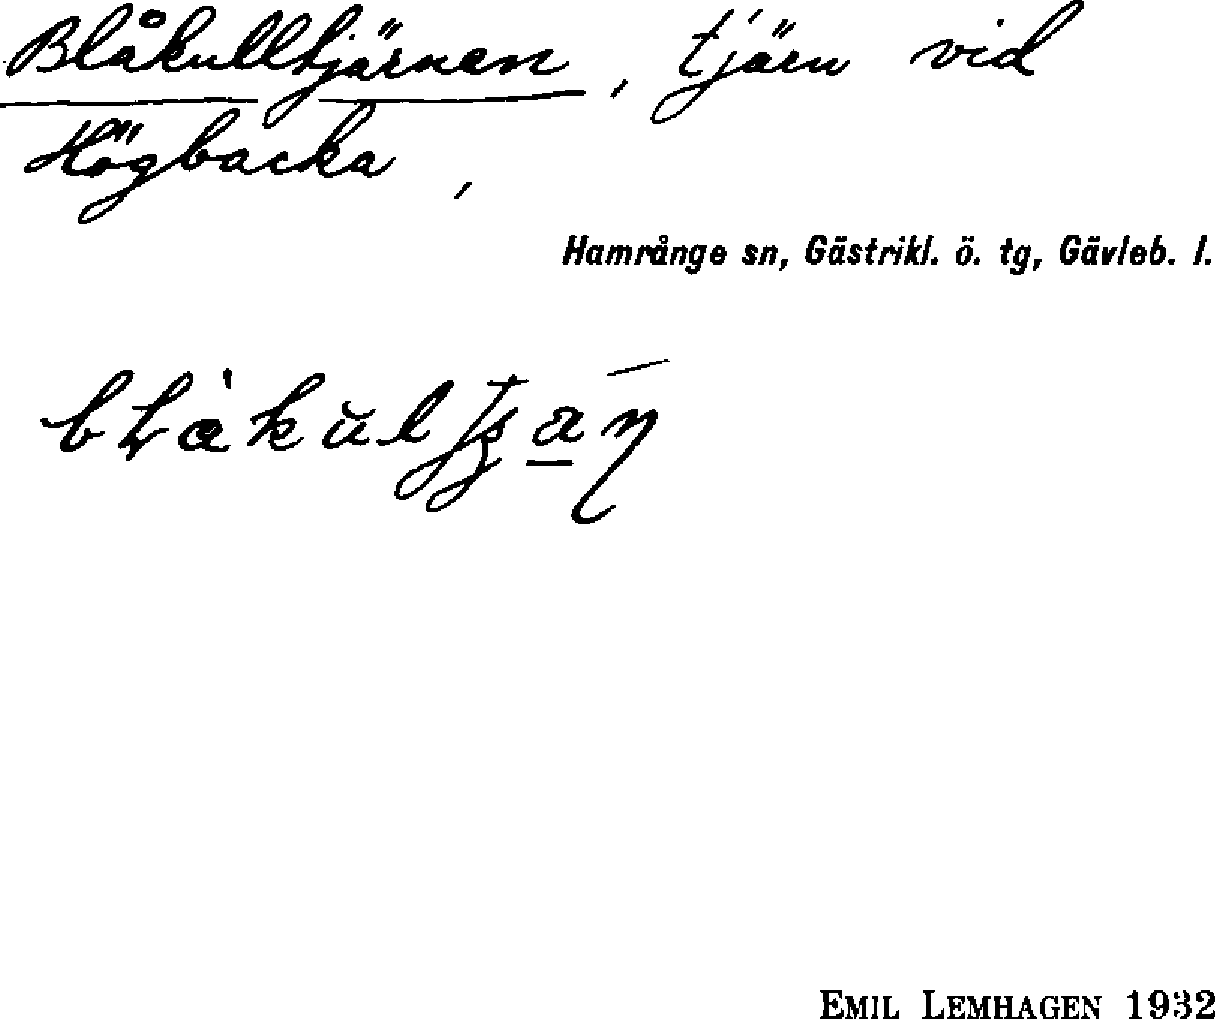 Blåkulltjärnen, tjärn vid
Högbacka,
Hamrånge sn, Gästrikl. ö. tg, Gävleb. l.
EMIL LEMHAGEN 1932